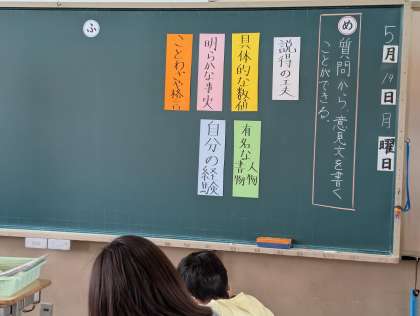 5月19日月曜日
め
質問から、意見文を書く
ことができる。
説得の工夫
具体的な数値
明らかな事実
ことわざや格言
有名な人物
書物
自分の経験
ふ